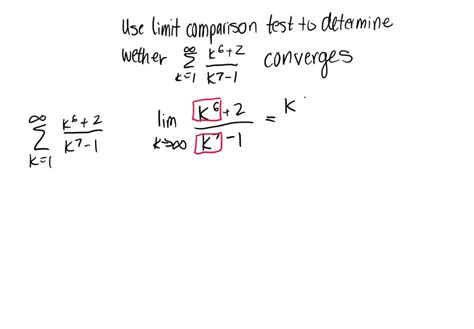 Use limit comparison test to determine
wether ∞ Σ k=1 k⁶+2 / k⁷-1 converges
∞ Σ k=1 k⁶+2 / k⁷-1 lim k→∞ k⁶+2 / k⁷-1 = k